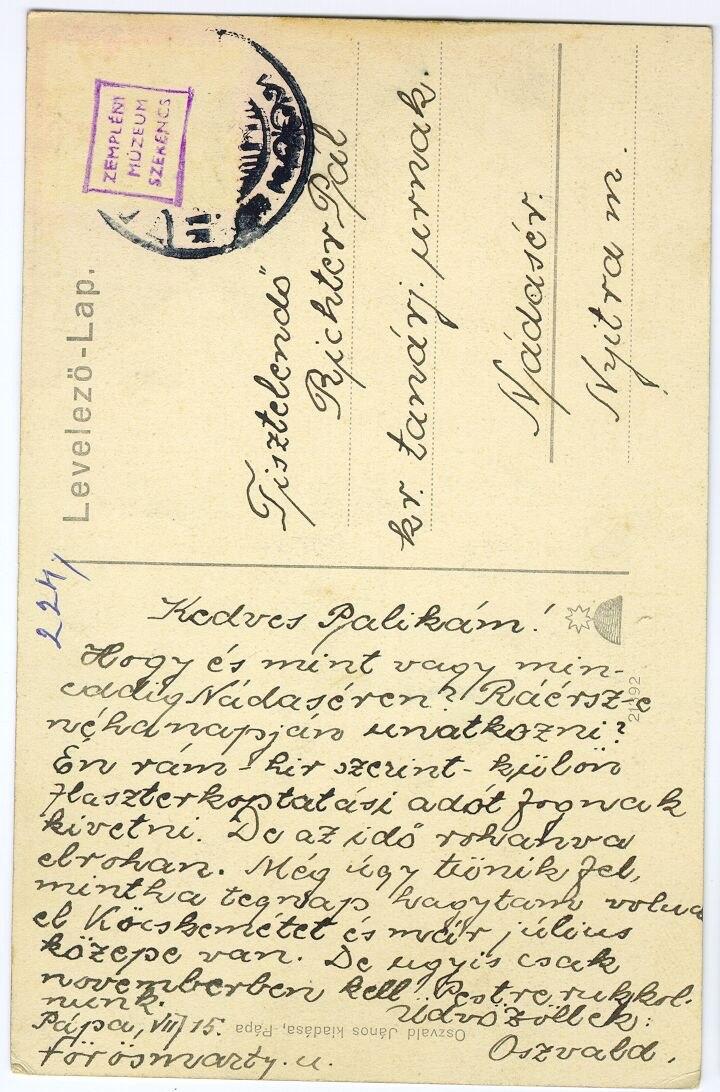 ZEMPLÉNI
MÚZEUM
SZERENCS
Levelező-Lap.
Tisztelendő
Richter Pál
kr. tanárj. urnak.
Nádasér.
Nyitra m.
Kedves Palikám!
Hogy és mint vagy min-
eddig Nádaséren? Ráérsz-e
néhanapján unatkozni?
Én rám - hir szerint - külön
flaszterkoptatási adót fognak
kivetni. De az idő rohanva
elrohan. Még úgy tűnik fel,
mintha tegnap hagytam volna
el Köcskemétet és már július
közepe van. De ugyis csak
novemberben kell Pestre rukkol-
nunk.
Üdvözöllek:
Pápa, VII/15.
Oszvald.
Vörösmarty. u.
21392
Oszvald János kiadása, Pápa